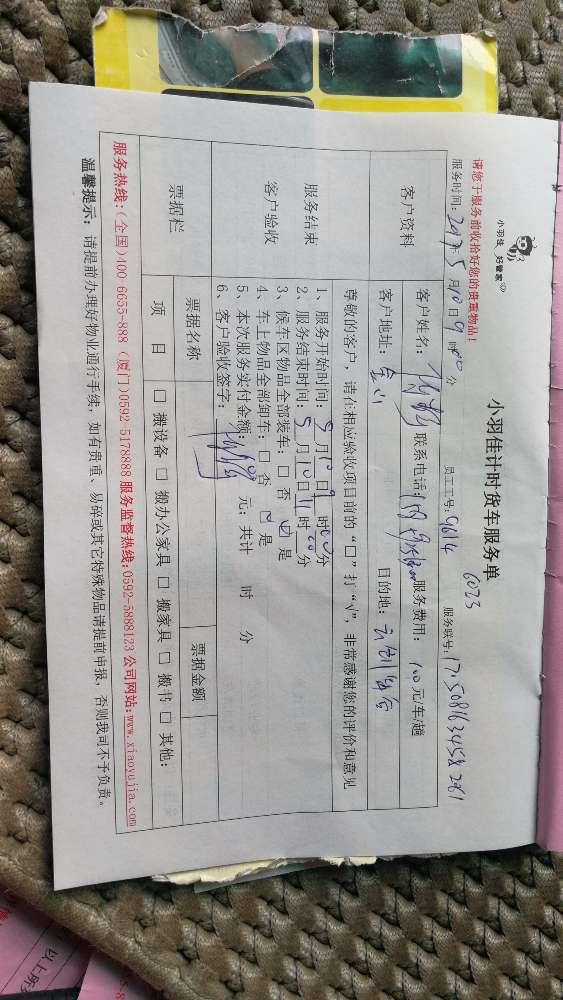 小羽佳 好管家
小羽佳计时货车服务单
6023
请您于服务前收拾好您的贵重物品!
服务时间: 2017年5月10日9时00分 员工工号: 9614 服务联号:
客户资料 客户姓名: 联系电话: 服务费用: 100元/车/趟
客户地址: 目的地:
服务结束
客户验收
尊敬的客户，请在相应验收项目前的“□”打“√”，非常感谢您的评价和意见
1、服务开始时间: 5月10日9时00分
2、服务结束时间: 5月10日11时00分
3、候车区物品全部装车: □ 否 ☑ 是
4、车上物品全部卸车: □ 否 ☑ 是
5、本次服务实付金额: 元; 共计 时 分
6、客户验收签字:
票据栏 票据名称 票据金额
项 目 □ 搬设备 □ 搬办公家具 □ 搬家具 □ 搬书 □ 其他:
服务热线:(全国)400 6655-888 (厦门)0592-5178888 服务监督热线:0592-5888123 公司网站:www.xiaoyujia.com
温馨提示: 请提前办理好物业通行手续，如有贵重、易碎或其它特殊物品请提前申报，否则我司不予负责。